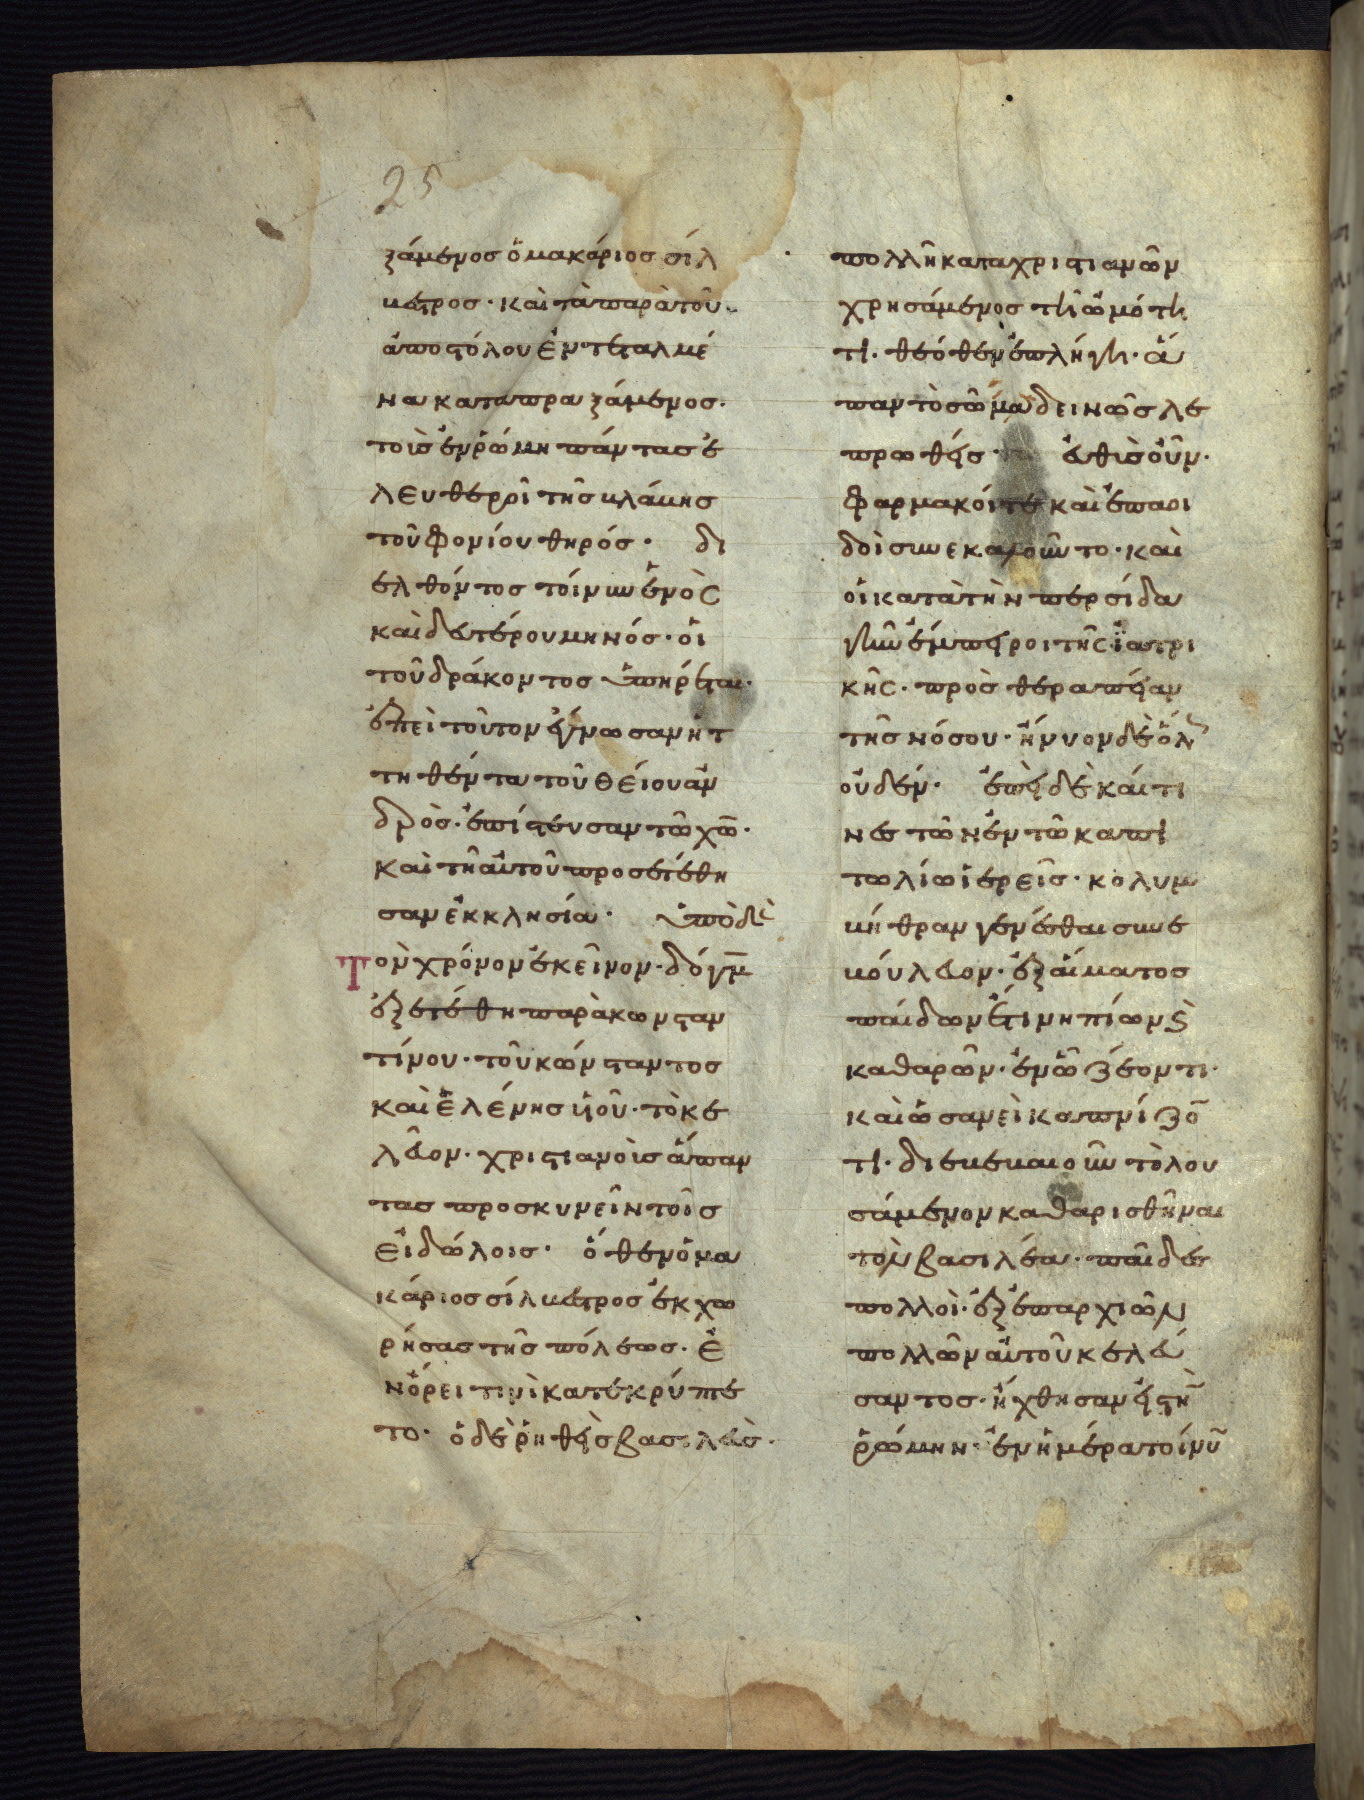 25
ξάμενος ὁ μακάριος σίλ
βεστρος· καὶ τὰ παρὰ τοῦ
ἀποστόλου ἐντεταλμέ
να καταπραξάμενος·
τοῖς ἐν ῥώμη πάντας ἐ
λευθεροῖ τῆς βλάβης
τοῦ φονίου θηρός· δι
ελθόντος τοίνυν ἑνὸς
καὶ δευτέρου μηνός· οἱ
τοῦ δράκοντος ὑπηρέται·
ἐπεὶ τοῦτον ἔγνωσαν ἡτ
τηθέντα τοῦ θείου ἀν
δρὸς· ἐπίστευσαν τῶ χω̄·
καὶ τῆ αὐτοῦ προσετέθη
σαν ἐκκλησία· ὑπὸ δὲ
Τὸν χρόνον ἐκεῖνον· δόγμ̄
ἐξετέθη παρὰ κωνσταν
τίνου· τοῦ κώνσταντος
καὶ ἑλένης υἱοῦ· τὸ κε
λεῦον· χριστιανοὺς ἅπαν
τας προσκυνεῖν τοῖς
εἰδώλοις· ὅθεν ὁ μα
κάριος σίλβεστρος ἐκχω
ρήσας τῆς πόλεως· ἐ
ν ὄρει τινὶ κατεκρύπτε
το· ὁ δὲ ῥηθεὶς βασιλεὺς·
πολλῆ κατα χριστιανῶν
χρησάμενος τῆ ὠμότη
τι· θεόθεν ἐπλήγη· ἅ
παν τὸ σῶμα δεινῶς λε
πρωθείς· εὐθὺς οὖν·
φαρμακοί τε καὶ ἐπαοι
δοὶ συνεκαλοῦντο· καὶ
οἱ κατὰ τὴν περσίδα
γῆν ἔμπειροι τῆς ἰατρι
κῆς· πρὸς θεραπείαν
τῆς νόσου· ἤνυον δὲ ὅλως
οὐδέν· ἐπεὶ δὲ καί τι
νες τῶν ἐν τῶ καπι
τωλίω ἱερεῖς· κολυμ
βήθραν γενέσθαι συνε
βούλευον· ἐξ αἵματος
παίδων ἔτι νηπίων καὶ
καθαρῶν· ἐν ᾧ ζέοντι·
καὶ ὡσανεὶ καπνίζο̄
τι· διεβεβαιοῦντο λου
σάμενον καθαρισθῆναι
τὸν βασιλέα· παῖδες
πολλοὶ· ἐξ ἐπαρχιῶν
πολλῶν αὐτοῦ κελεύ
σαντος· ἤχθησαν εἰς τὴ̄
ῥώμην· ἐν ἡμέρα τοίνῡ